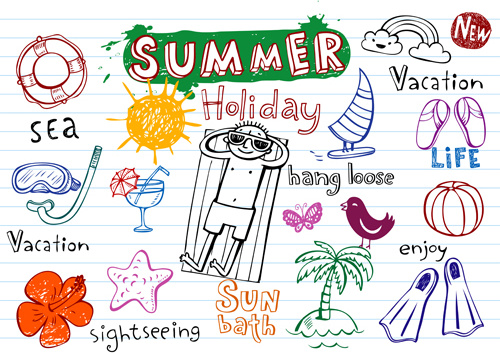 SUMMER
NEW
Holiday
Vacation
SEA
LiFE
hang loose
Vacation
enjoy
SUN
bath
sightseeing